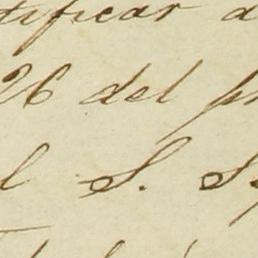 tificar a
26 del p
l S. S